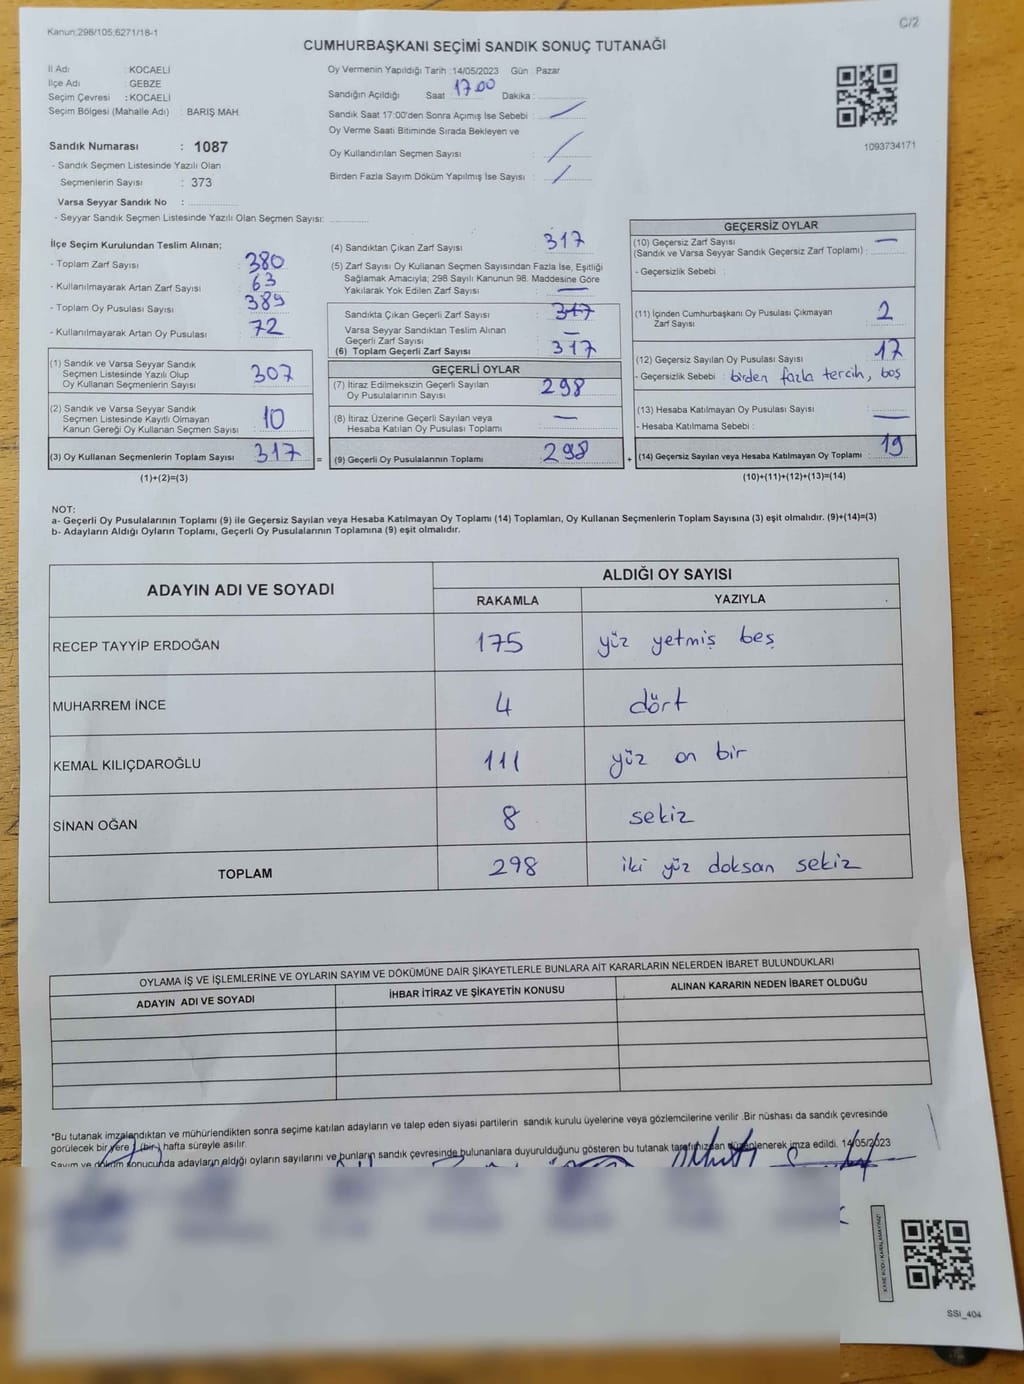 Kanun:298/105,6271/18-1
C/2
CUMHURBAŞKANI SEÇİMİ SANDIK SONUÇ TUTANAĞI
İl Adı : KOCAELİ
İlçe Adı : GEBZE
Seçim Çevresi : KOCAELİ
Seçim Bölgesi (Mahalle Adı) : BARIŞ MAH.
Sandık Numarası : 1087
- Sandık Seçmen Listesinde Yazılı Olan
Seçmenlerin Sayısı : 373
Varsa Seyyar Sandık No :
- Seyyar Sandık Seçmen Listesinde Yazılı Olan Seçmen Sayısı:
Oy Vermenin Yapıldığı Tarih :14/05/2023 Gün Pazar
Sandığın Açıldığı Saat 17.00 Dakika :
Sandık Saat 17:00'den Sonra Açımış İse Sebebi : /
Oy Verme Saati Bitiminde Sırada Bekleyen ve
Oy Kullandırılan Seçmen Sayısı : /
Birden Fazla Sayım Döküm Yapılmış İse Sayısı : /
1093734171
İlçe Seçim Kurulundan Teslim Alınan;
- Toplam Zarf Sayısı : 380
- Kullanılmayarak Artan Zarf Sayısı : 63
- Toplam Oy Pusulası Sayısı : 389
- Kullanılmayarak Artan Oy Pusulası : 72
(1) Sandık ve Varsa Seyyar Sandık
Seçmen Listesinde Yazılı Olup
Oy Kullanan Seçmenlerin Sayısı : 307
(2) Sandık ve Varsa Seyyar Sandık
Seçmen Listesinde Kayıtlı Olmayan
Kanun Gereği Oy Kullanan Seçmen Sayısı : 10
(3) Oy Kullanan Seçmenlerin Toplam Sayısı : 317
(1)+(2)=(3)
(4) Sandıktan Çıkan Zarf Sayısı : 317
(5) Zarf Sayısı Oy Kullanan Seçmen Sayısından Fazla İse, Eşitliği
Sağlamak Amacıyla; 298 Sayılı Kanunun 98. Maddesine Göre
Yakılarak Yok Edilen Zarf Sayısı : —
Sandıkta Çıkan Geçerli Zarf Sayısı : 317
Varsa Seyyar Sandıktan Teslim Alınan
Geçerli Zarf Sayısı : —
(6) Toplam Geçerli Zarf Sayısı : 317
GEÇERLİ OYLAR
(7) İtiraz Edilmeksizin Geçerli Sayılan
Oy Pusulalarının Sayısı : 298
(8) İtiraz Üzerine Geçerli Sayılan veya
Hesaba Katılan Oy Pusulası Toplamı : —
= (9) Geçerli Oy Pusulalarının Toplamı : 298
GEÇERSİZ OYLAR
(10) Geçersiz Zarf Sayısı —
(Sandık ve Varsa Seyyar Sandık Geçersiz Zarf Toplamı) :
- Geçersizlik Sebebi :
(11) İçinden Cumhurbaşkanı Oy Pusulası Çıkmayan
Zarf Sayısı : 2
(12) Geçersiz Sayılan Oy Pusulası Sayısı : 17
- Geçersizlik Sebebi : birden fazla tercih, boş
(13) Hesaba Katılmayan Oy Pusulası Sayısı : —
- Hesaba Katılmama Sebebi :
+ (14) Geçersiz Sayılan veya Hesaba Katılmayan Oy Toplamı : 19
(10)+(11)+(12)+(13)=(14)
NOT:
a- Geçerli Oy Pusulalarının Toplamı (9) ile Geçersiz Sayılan veya Hesaba Katılmayan Oy Toplamı (14) Toplamları, Oy Kullanan Seçmenlerin Toplam Sayısına (3) eşit olmalıdır. (9)+(14)=(3)
b- Adayların Aldığı Oyların Toplamı, Geçerli Oy Pusulalarının Toplamına (9) eşit olmalıdır.
ADAYIN ADI VE SOYADI ALDIĞI OY SAYISI
RAKAMLA YAZIYLA
RECEP TAYYİP ERDOĞAN 175 yüz yetmiş beş
MUHARREM İNCE 4 dört
KEMAL KILIÇDAROĞLU 111 yüz on bir
SİNAN OĞAN 8 sekiz
TOPLAM 298 iki yüz doksan sekiz
OYLAMA İŞ VE İŞLEMLERİNE VE OYLARIN SAYIM VE DÖKÜMÜNE DAİR ŞİKAYETLERLE BUNLARA AİT KARARLARIN NELERDEN İBARET BULUNDUKLARI
ADAYIN ADI VE SOYADI İHBAR İTİRAZ VE ŞİKAYETİN KONUSU ALINAN KARARIN NEDEN İBARET OLDUĞU
*Bu tutanak imzalandıktan ve mühürlendikten sonra seçime katılan adayların ve talep eden siyasi partilerin sandık kurulu üyelerine veya gözlemcilerine verilir .Bir nüshası da sandık çevresinde
görülecek bir yere 1 (bir) hafta süreyle asılır.
Sayım ve döküm sonucunda adayların aldığı oyların sayılarını ve bunların sandık çevresinde bulunanlara duyurulduğunu gösteren bu tutanak tarafımızdan düzenlenerek imza edildi. 14/05/2023
SSİ_404